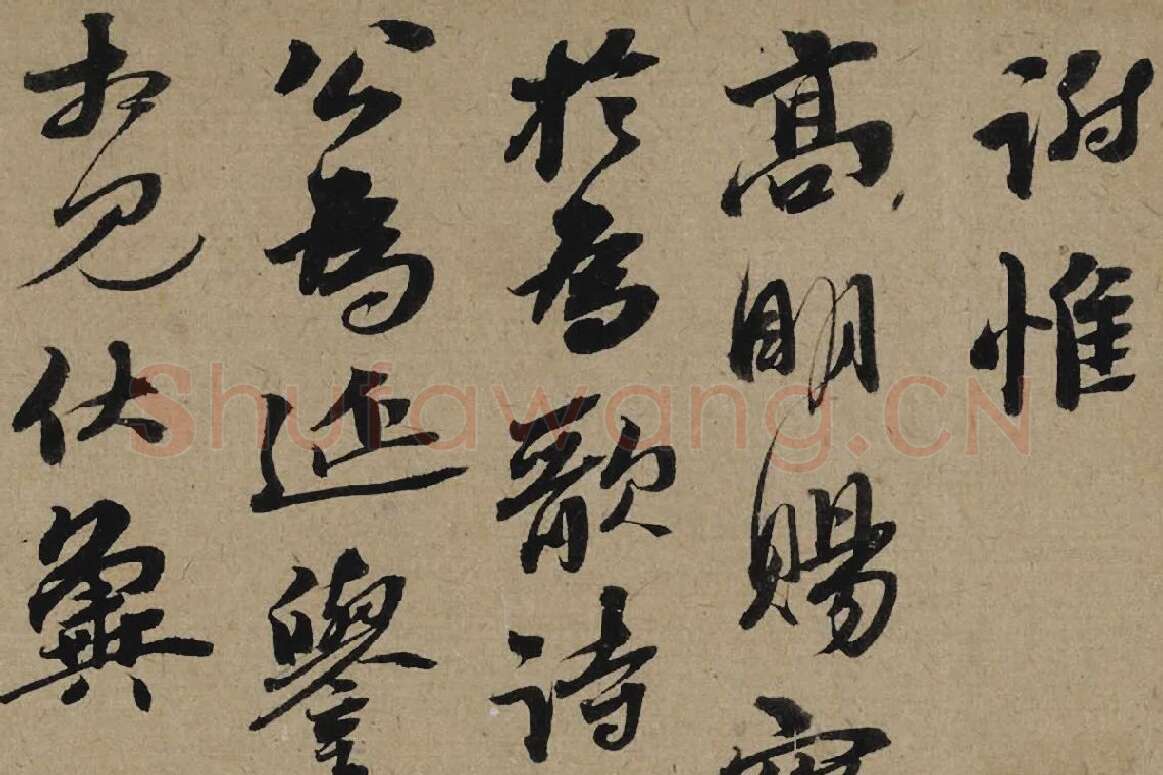 謝惟
高明賜
於為歌詩
公為延譽
相見伏冀
Shufawang.CN